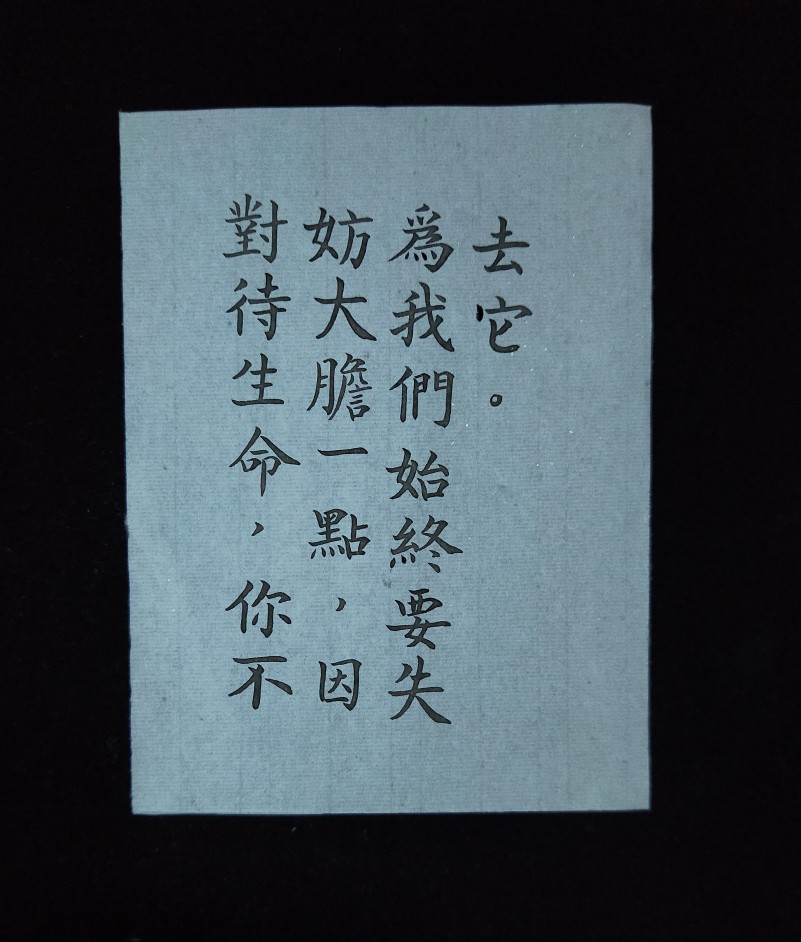 對待生命，你不
妨大膽一點，因
為我們始終要失
去它。